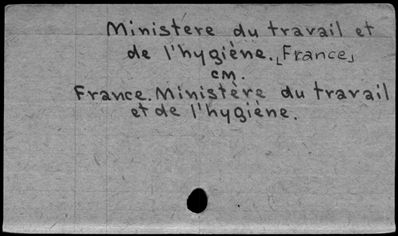 Ministère du travail et
de l'hygiène. [France]
cm.
France. Ministère du travail
et de l'hygiène.